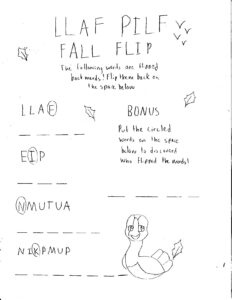 LLAF PILF
FALL FLIP
The following words are flipped
backwards! Flip them back on
the space below
LLAF
BONUS
EIP
Put the circled
words on the space
below to discover
who flipped the words!
NMUTUA
NIKPMUP